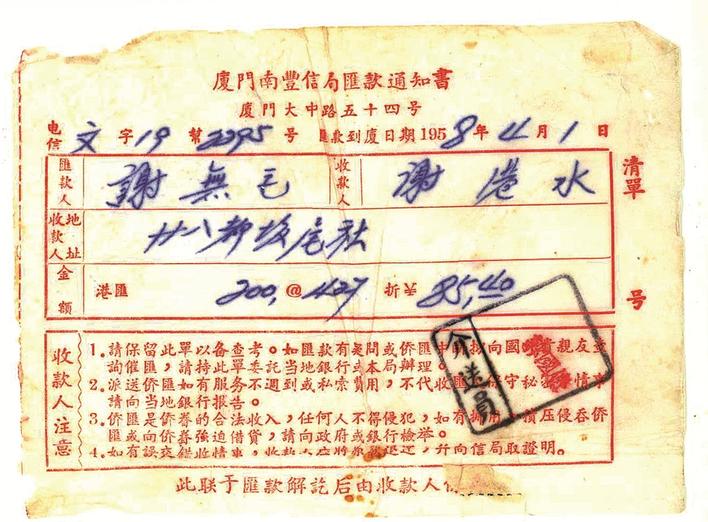 廈門南豐信局匯款通知書
廈門大中路五十四号
电信 文 字19 第2295 号 匯款到廈日期1958年4月1日
匯款人 謝無毛 收款人 謝港水
收款人地址 廿八都坂尾社
金額 港匯 200,@427 折¥85.40
清單 号
收款人注意
1.請保留此單以备查考。如当地銀行或僑匯
詢催匯,請持此單委託匯款有疑問本局辦理。
2.派送僑匯如有服务不週到或私索費用,不代收匯 保守秘密
請向当地銀行报告。
3.僑匯是僑眷的合法收入,任何人不得侵犯,如有挪用積压侵吞僑
匯或向僑眷強迫借貸,請向政府或銀行檢举。
4.如有誤交錯收情事,收款人应將原款退还,幷向信局取證明。
此联于匯款解訖后由收款人
介送局